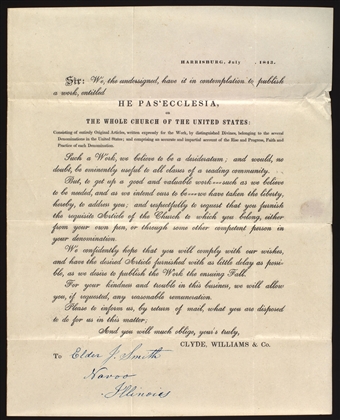 HARRISBURG, July , 1843.
Sir: We, the undersigned, have it in contemplation to publish
a work, entitled
HE PAS'ECCLESIA,
OR
THE WHOLE CHURCH OF THE UNITED STATES;
Consisting of entirely Original Articles, written expressly for the Work, by distinguished Divines, belonging to the several
Denominations in the United States; and comprising an accurate and impartial account of the Rise and Progress, Faith and
Practice of each Denomination.
Such a Work, we believe to be a desideratum; and would, no
doubt, be eminently useful to all classes of a reading community.
But, to get up a good and valuable work---such as we believe
to be needed, and as we intend ours to be---we have taken the liberty,
hereby, to address you; and respectfully to request that you furnish
the requisite Article of the Church to which you belong, either
from your own pen, or through some other competent person in
your denomination.
We confidently hope that you will comply with our wishes,
and have the desired Article furnished with as little delay as possi-
ble, as we desire to publish the Work the ensuing Fall.
For your kindness and trouble in this business, we will allow
you, if requested, any reasonable remuneration.
Please to inform us, by return of mail, what you are disposed
to do for us in this matter;
And you will much oblige, your's truly,
CLYDE, WILLIAMS & Co.
To Elder J. Smith
Navoo
Illinois